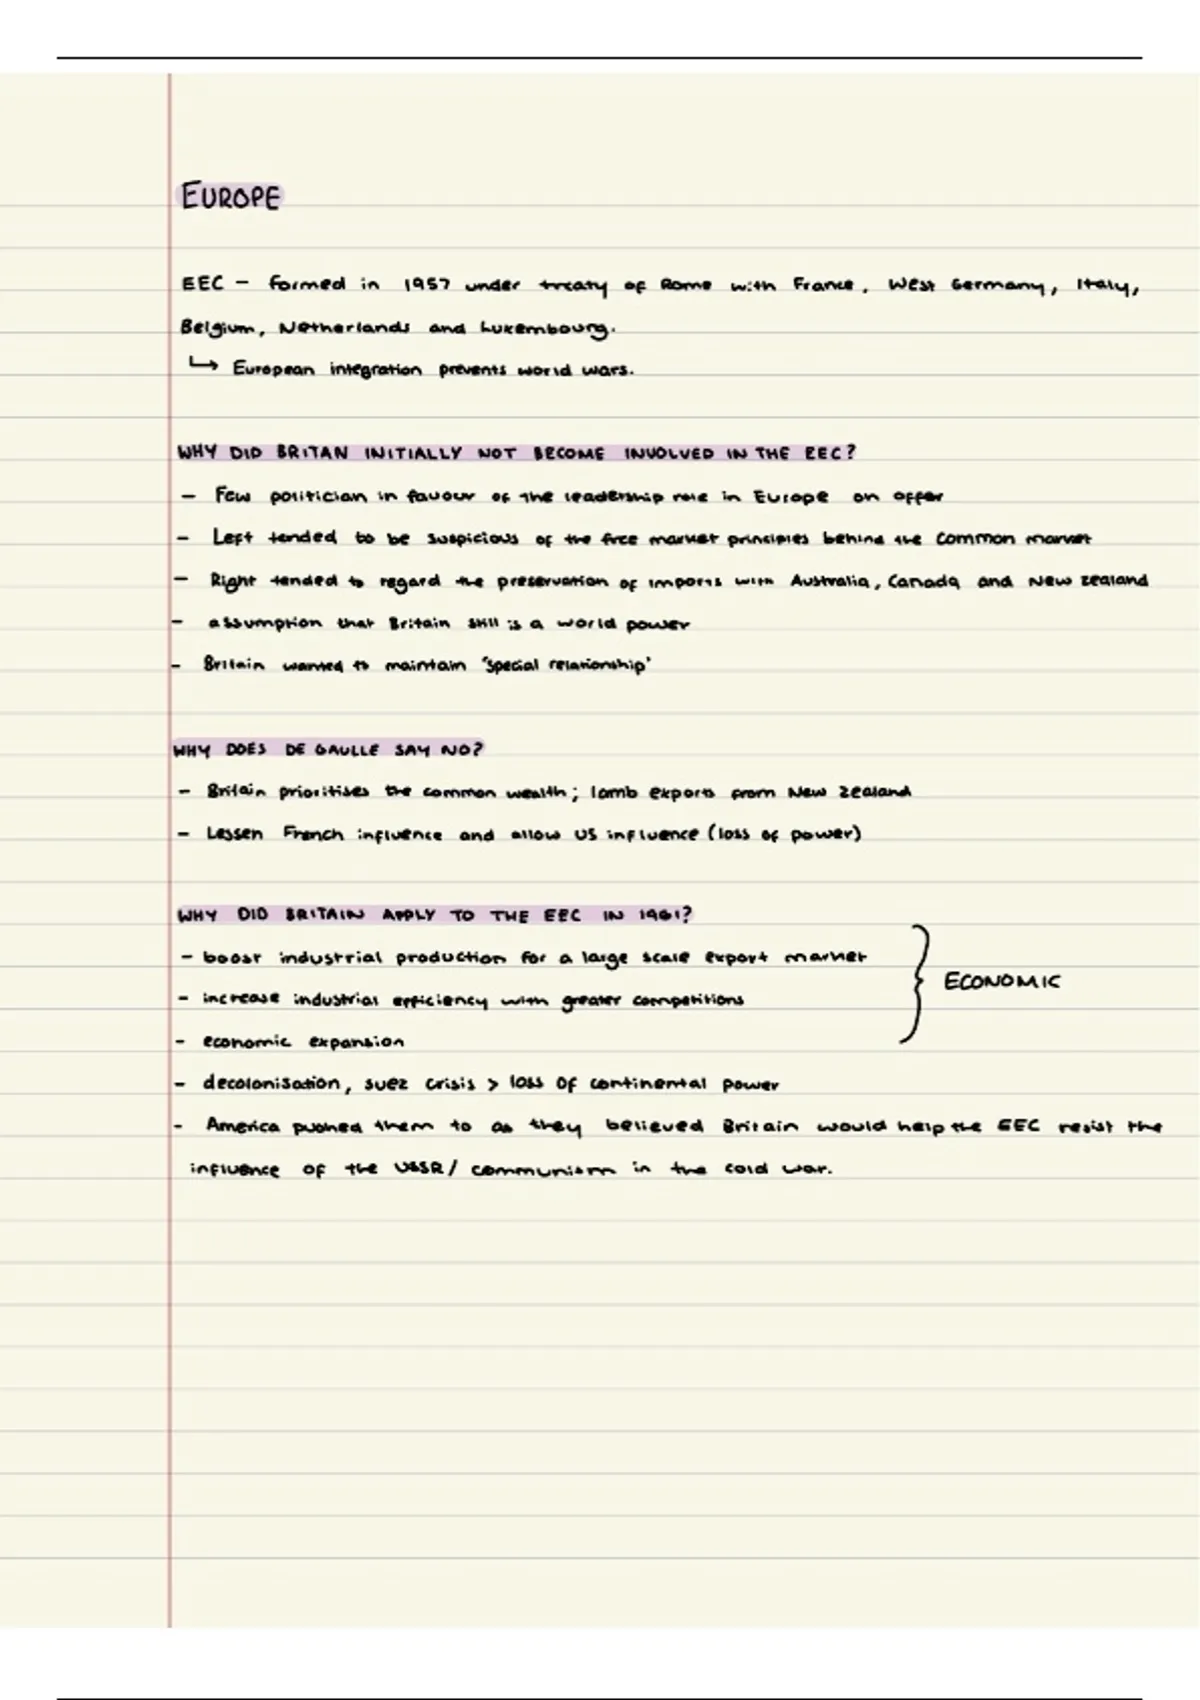 EUROPE
EEC - formed in 1957 under treaty of Rome with France, West Germany, Italy,
Belgium, Netherlands and Luxembourg.
↳ European integration prevents world wars.
WHY DID BRITAN INITIALLY NOT BECOME INVOLVED IN THE EEC?
- Few politician in favour of the leadership role in Europe on offer
- Left tended to be suspicious of the free market principles behind the common market
- Right tended to regard the preservation of imports with Australia, Canada and New Zealand
- assumption that Britain still is a world power
- Britain wanted to maintain 'special relationship'
WHY DOES DE GAULLE SAY NO?
- Britain prioritises the common wealth; lamb exports from New Zealand
- Lessen French influence and allow US influence (loss of power)
WHY DID BRITAIN APPLY TO THE EEC IN 1961?
- boost industrial production for a large scale export market
- increase industrial efficiency with greater competitions
ECONOMIC
- economic expansion
- decolonisation, suez crisis > loss of continental power
- America pushed them to as they believed Britain would help the EEC resist the
influence of the USSR/ communism in the cold war.